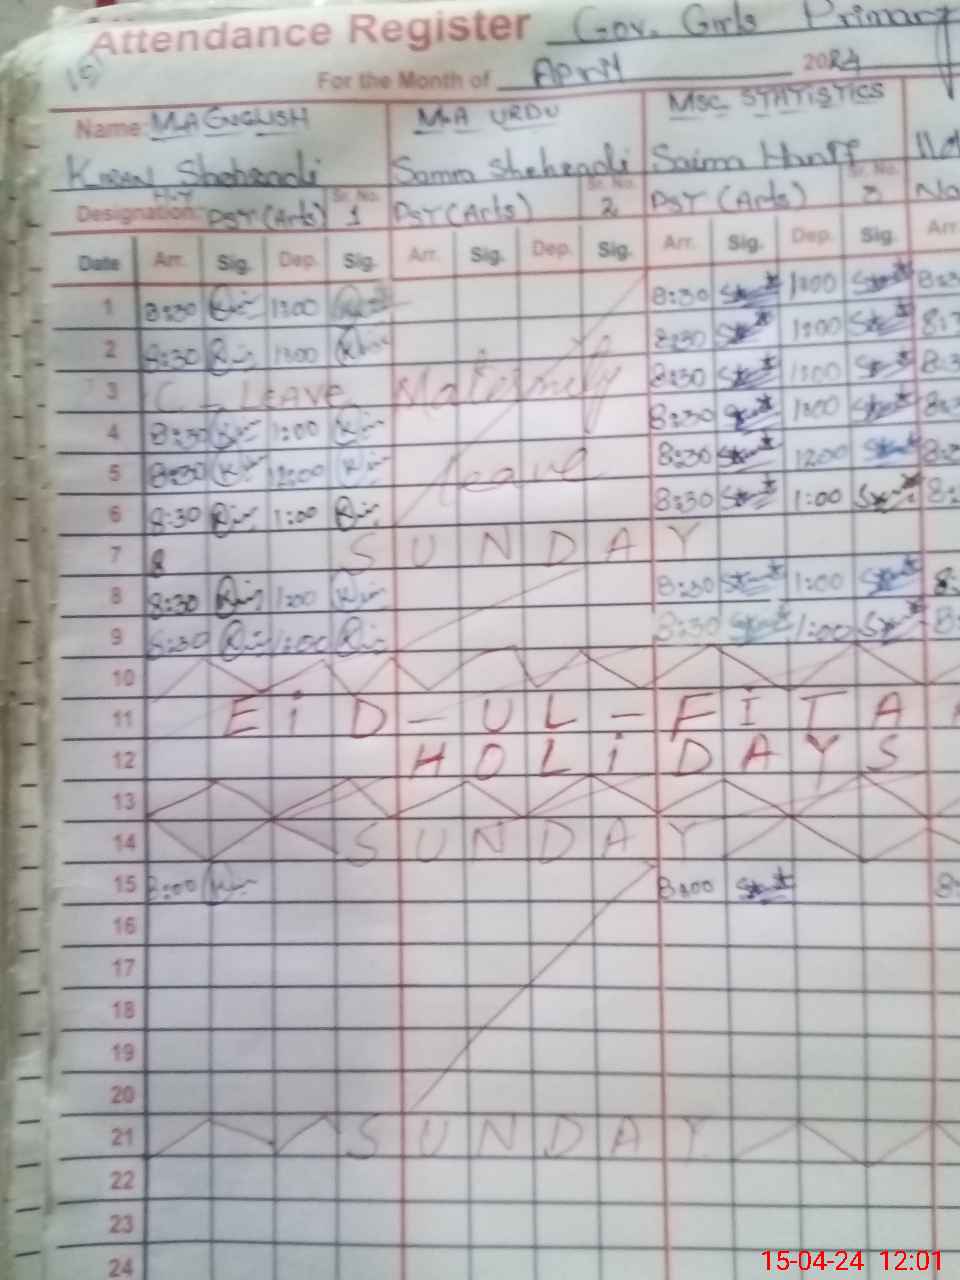 Attendance Register Gov. Girls Primary
For the Month of April 2024
Name: M.A ENGLISH M.A URDU MSC STATISTICS
Shehzadi Shehzadi Saima Hanif
Designation: PST (Arts) Sr. No. 1 PST (Arts) Sr. No. 2 PST (Arts) Sr. No. 3
Date Arr. Sig. Dep. Sig. Arr. Sig. Dep. Sig. Arr. Sig. Dep. Sig. Arr.
1 8:30 1:00 8:30 1:00
2 8:30 1:00 8:30 1:00
3 C - Leave Maternity 8:30 1:00
4 8:30 1:00 8:30 1:00
5 8:30 12:00 leave 8:30 12:00
6 8:30 1:00 8:30 1:00
7 8 SUNDAY
8 8:30 1:00 8:30 1:00
9 8:30 1:00 8:30 1:00
10
11 EiD-UL-FITA
12 HOLiDAYS
13
14 SUNDAY
15 8:00 8:00
16
17
18
19
20
21 SUNDAY
22
23
24
15-04-24 12:01